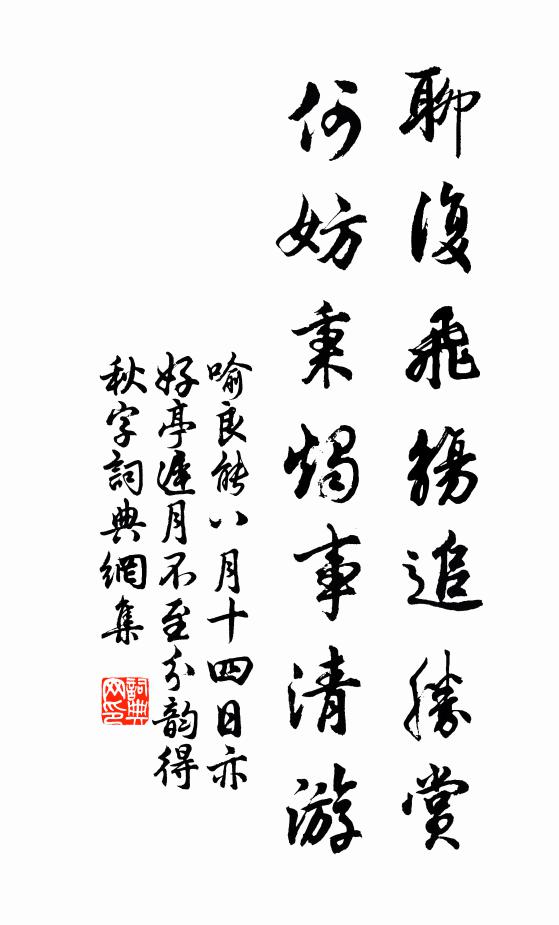 聊復飛觴追勝賞
何妨秉燭事清游
喻良能八月十四日亦
好亭遲月不至分韵得
秋字詞典網集
詞典網印